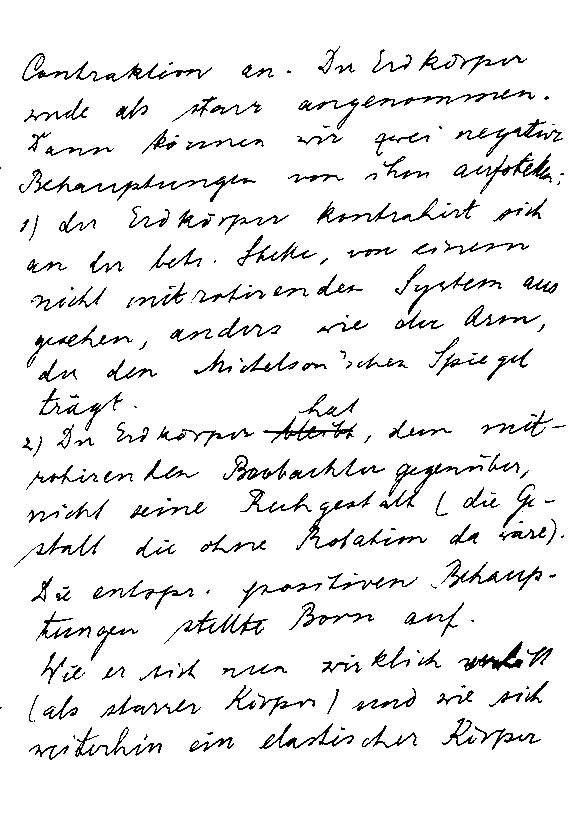 Contraktion an. Der Erdkörper
wurde als starr angenommen.
Dann können wir zwei negative
Behauptungen von ihm aufstellen:
1) der Erdkörper kontrahirt sich
an der betr. Stelle, von einem
nicht mitrotirenden System aus
gesehen, anders wie der Arm,
der den Michelson'schen Spiegel
trägt.
2) Der Erdkörper bleibt hat, dem mit-
rotirenden Beobachter gegenüber,
nicht seine Ruhgestalt (die Ge-
stalt die ohne Rotation da wäre).
Die entspr. positiven Behaup-
tungen stellte Born auf.
Wie er sich nun wirklich verhält
(als starrer Körper) und wie sich
weiterhin ein elastischer Körper